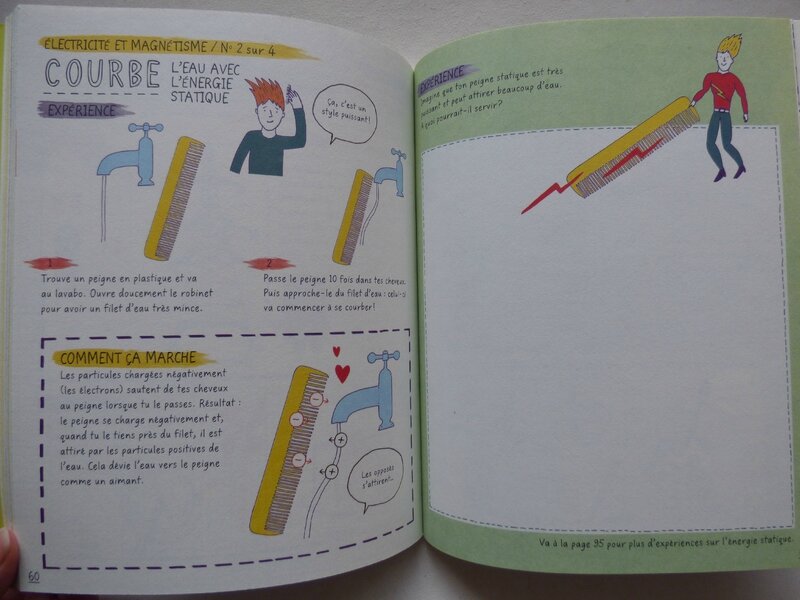 ÉLECTRICITÉ ET MAGNÉTISME / N° 2 sur 4
COURBE L'EAU AVEC
L'ÉNERGIE
STATIQUE
EXPÉRIENCE
Ça, c'est un
style puissant!
1
Trouve un peigne en plastique et va
au lavabo. Ouvre doucement le robinet
pour avoir un filet d'eau très mince.
2
Passe le peigne 10 fois dans tes cheveux.
Puis approche-le du filet d'eau : celui-ci
va commencer à se courber!
COMMENT ÇA MARCHE
Les particules chargées négativement
(les électrons) sautent de tes cheveux
au peigne lorsque tu le passes. Résultat :
le peigne se charge négativement et,
quand tu le tiens près du filet, il est
attiré par les particules positives de
l'eau. Cela dévie l'eau vers le peigne
comme un aimant.
Les opposés
s'attirent...
60
EXPÉRIENCE
Imagine que ton peigne statique est très
puissant et peut attirer beaucoup d'eau.
À quoi pourrait-il servir?
Va à la page 95 pour plus d'expériences sur l'énergie statique.